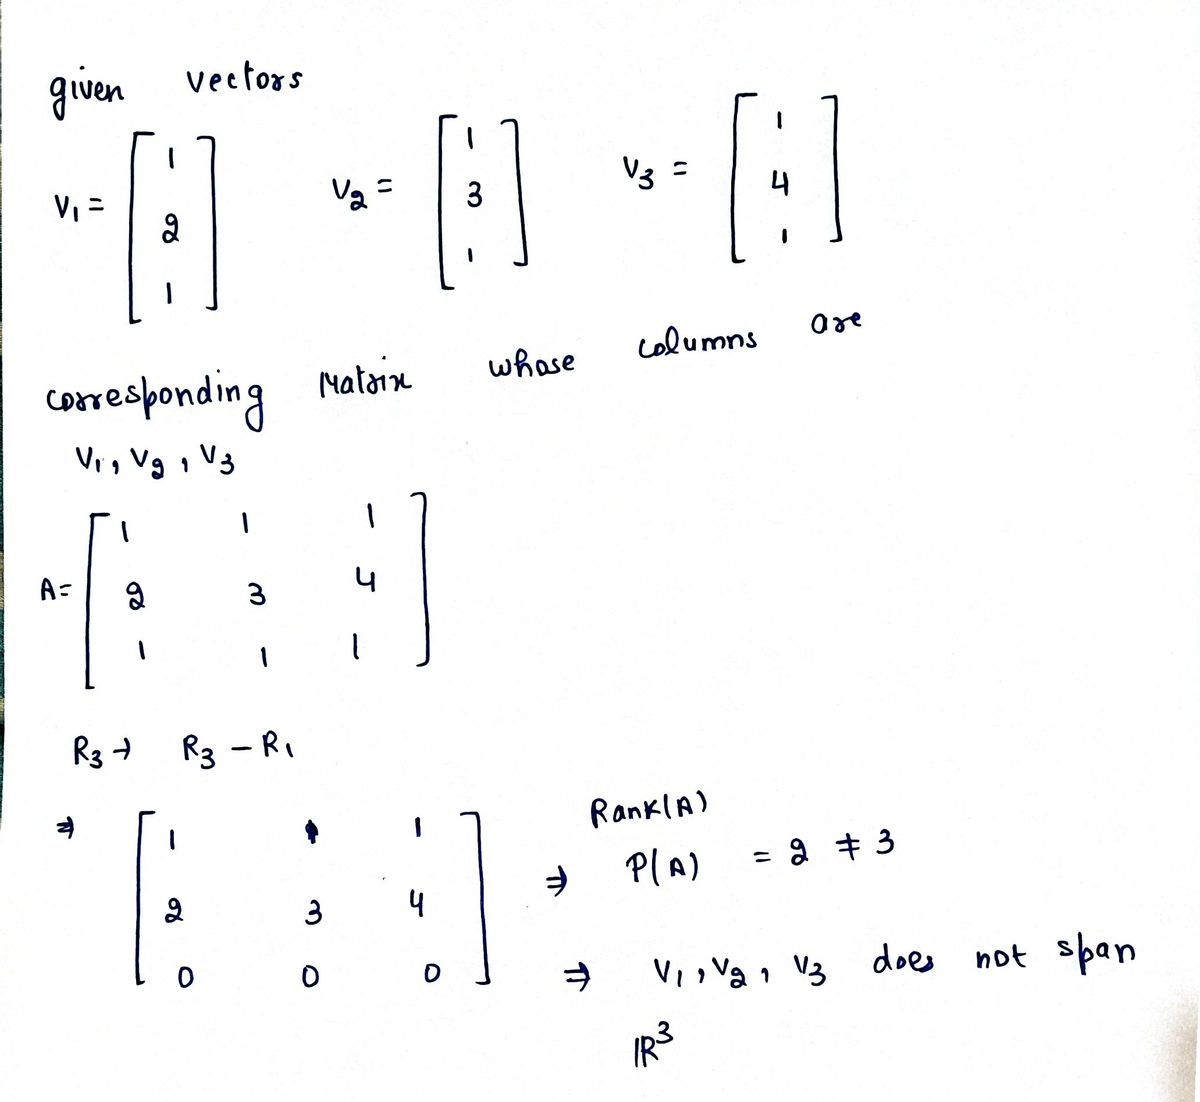 given vectors
V₁ = [ 1 2 1 ] V₂ = [ 1 3 1 ] V₃ = [ 1 4 1 ]
corresponding Matrix whose columns are
V₁, V₂, V₃
A = [ 1 1 1
2 3 4
1 1 1 ]
R₃ → R₃ - R₁
⇒ [ 1 1 1
2 3 4
0 0 0 ]
Rank(A)
⇒ P(A) = 2 ≠ 3
⇒ V₁, V₂, V₃ does not span
ℝ³